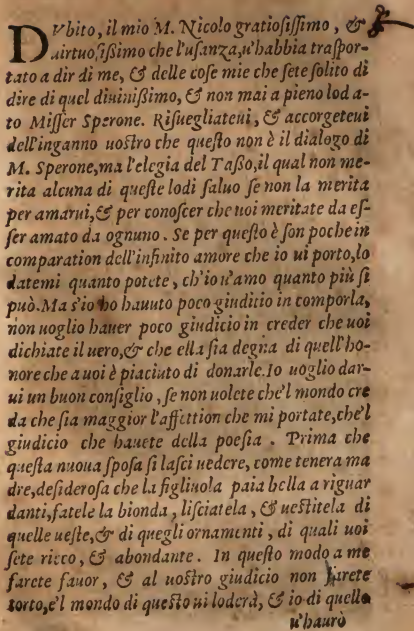 DVbito, il mio M. Nicolo gratiosißimo, &
uirtuosißimo che l'usanza, u'habbia traspor-
tato a dir di me, & delle cose mie che sete solito di
dire di quel diuinißimo, & non mai a pieno loda-
to Misser Sperone. Risuegliateui, & accorgeteui
dell'inganno uostro che questo non è il dialogo di
M. Sperone, ma l'elegia del Taßo, il qual non me-
rita alcuna di queste lodi saluo se non la merita
per amarui, & per conoscer che uoi meritate da es-
ser amato da ognuno. Se per questo è son poche in
comparation dell'infinito amore che io ui porto, lo
datemi quanto potete, ch'io u'amo quanto più si
può. Ma s'io ho hauuto poco giuditio in comporla,
non uoglio hauer poco giudicio in creder che uoi
dichiate il uero, & che ella sia degna di quell'ho-
nore che a uoi è piaciuto di donarle. Io uoglio dar-
ui un buon consiglio, se non uolete che'l mondo cre
da che sia maggior l'affettion che mi portate, che'l
giudicio che hauete della poesia. Prima che
questa nuoua sposa si lasci uedere, come tenera ma
dre, desiderosa che la figliuola paia bella a riguar
danti, fatele la bionda, lisciatela, & uestitela di
quelle ueste, & di quegli ornamenti, di quali uoi
sete ricco, & abondante. In questo modo a me
farete fauor, & al uostro giudicio non farete
torto, e'l mondo di questo ui loderà, & io di quello
u'haurò